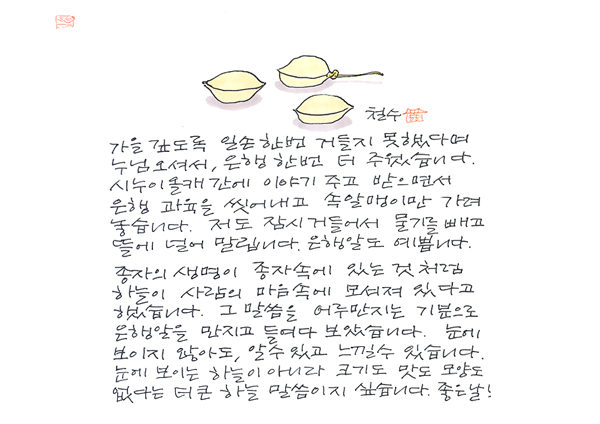 철수
가을 깊도록 일손 한번 거들지 못했다며
누님 오셔서, 은행 한번 더 주웠습니다.
시누이 올캐 간에 이야기 주고 받으면서
은행 과육을 씻어내고 속알맹이만 가려
놓습니다. 저도 잠시 거들어서 물기를 빼고
뜰에 널어 말립니다. 은행알도 예쁩니다.
종자의 생명이 종자속에 있는 것처럼
하늘이 사람의 마음속에 모셔져 있다고
했습니다. 그 말씀을 어루만지는 기쁨으로
은행알을 만지고 들여다 보았습니다. 눈에
보이지 않아도, 알 수 있고 느낄 수 있습니다.
눈에 보이는 하늘이 아니라 크기도 맛도 모양도
없다는 더 큰 하늘 말씀이지 싶습니다. 좋은날!